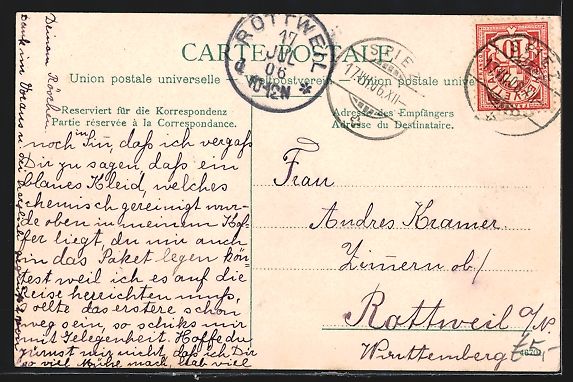 CARTE POSTALE
Union postale universelle — Weltpostverein — Unione postale
Reserviert für die Korrespondenz
Partie réservée à la Correspondance.
Adresse des Empfängers
Adresse du Destinataire.
ROTTWEIL
17
JUL
06
10-12N
SPIEZ
17.VII.06.XII
noch daß ich vergaß
Dir zu sagen, daß ein
blaues Kleid, welches
chemisch gereinigt wur-
de oben in meinem Kof-
fer liegt, du mir auch
in das Paket legen kön-
test weil ich es auf die
Reise herrichten muß,
sollte das erstere schon
weg sein, so schiks mir
mit Gelegenheit. Hoffe du
zürnst mir nicht, daß ich Dir
so viel Mühe mach, hab viel
Dank im Voraus u. sei herzlich gegrüßt von
Deinem Röschen
Frau
Andres Kramer
Zimern ob/
Rottweil a/N.
Württemberg
75,-